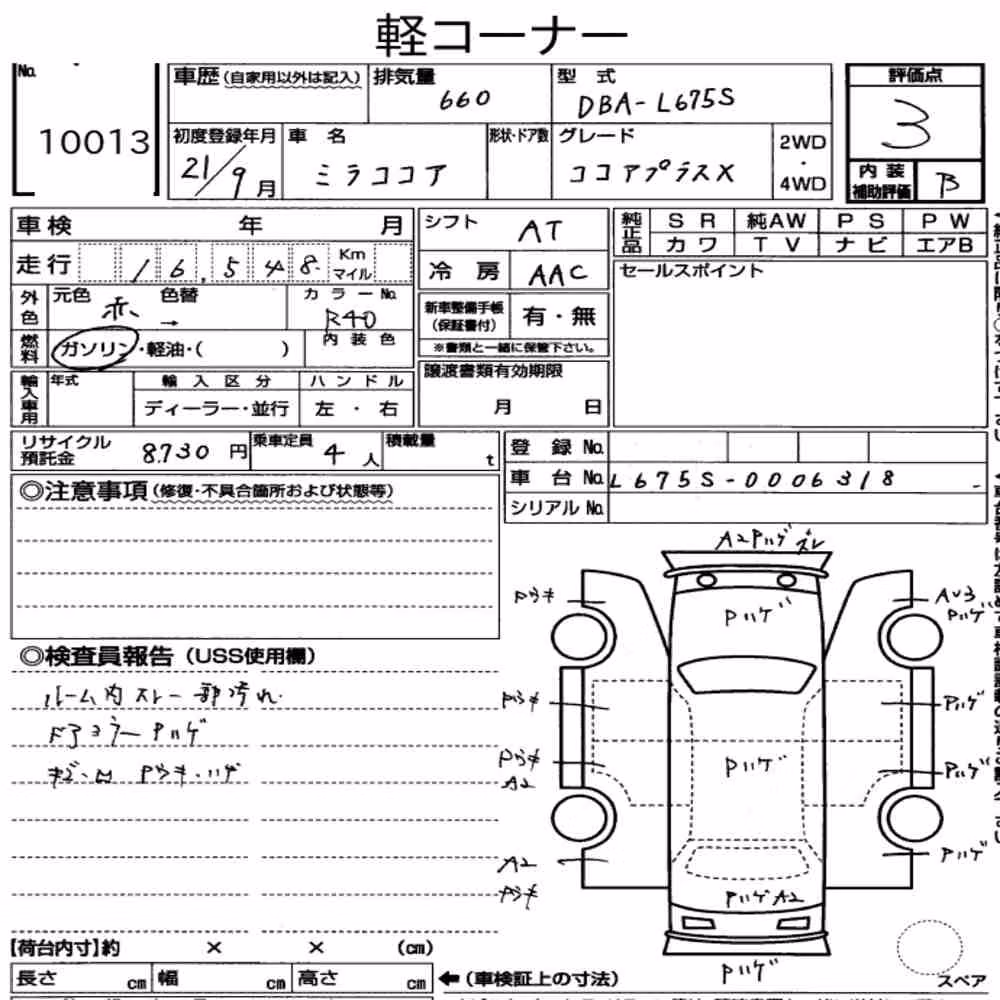 軽コーナー
No.
10013
車歴(自家用以外は記入)
排気量
660
型 式
DBA-L675S
評価点
3
初度登録年月
21/9月
車 名
ミラココア
形状・ドア数
グレード
ココアプラスX
2WD
・
4WD
内 装
補助評価
B
車検 年 月
走行 16,548 Km マイル
外色
元色 赤
色替 →
カラーNo.
R40
燃料
ガソリン・軽油・( )
内装色
輸入車用
年式
輸入区分
ディーラー・並行
ハンドル
左 ・ 右
シフト
AT
冷 房
AAC
新車整備手帳
(保証書付)
有・無
※書類と一緒に保管下さい。
譲渡書類有効期限
月 日
純正品
SR 純AW PS PW
カワ TV ナビ エアB
セールスポイント
リサイクル
預託金
8,730 円
乗車定員
4 人
積載量
t
登 録 No.
車 台 No. L675S-0006318
シリアル No.
◎注意事項(修復・不具合箇所および状態等)
◎検査員報告(USS使用欄)
ルーム内 スレ 一部汚れ.
ドアミラーPハゲ
Pウキ・ハゲ
A2 Pハゲ ズレ
Pウキ
Pハゲ
AU3
Pハゲ
Pウキ
Pハゲ
Pウキ
A2
Pハゲ
Pハゲ
A2
Pウキ
Pハゲ
Pハゲ A2
Pハゲ
スペア
【荷台内寸】約 × × (cm)
長さ cm 幅 cm 高さ cm
←(車検証上の寸法)